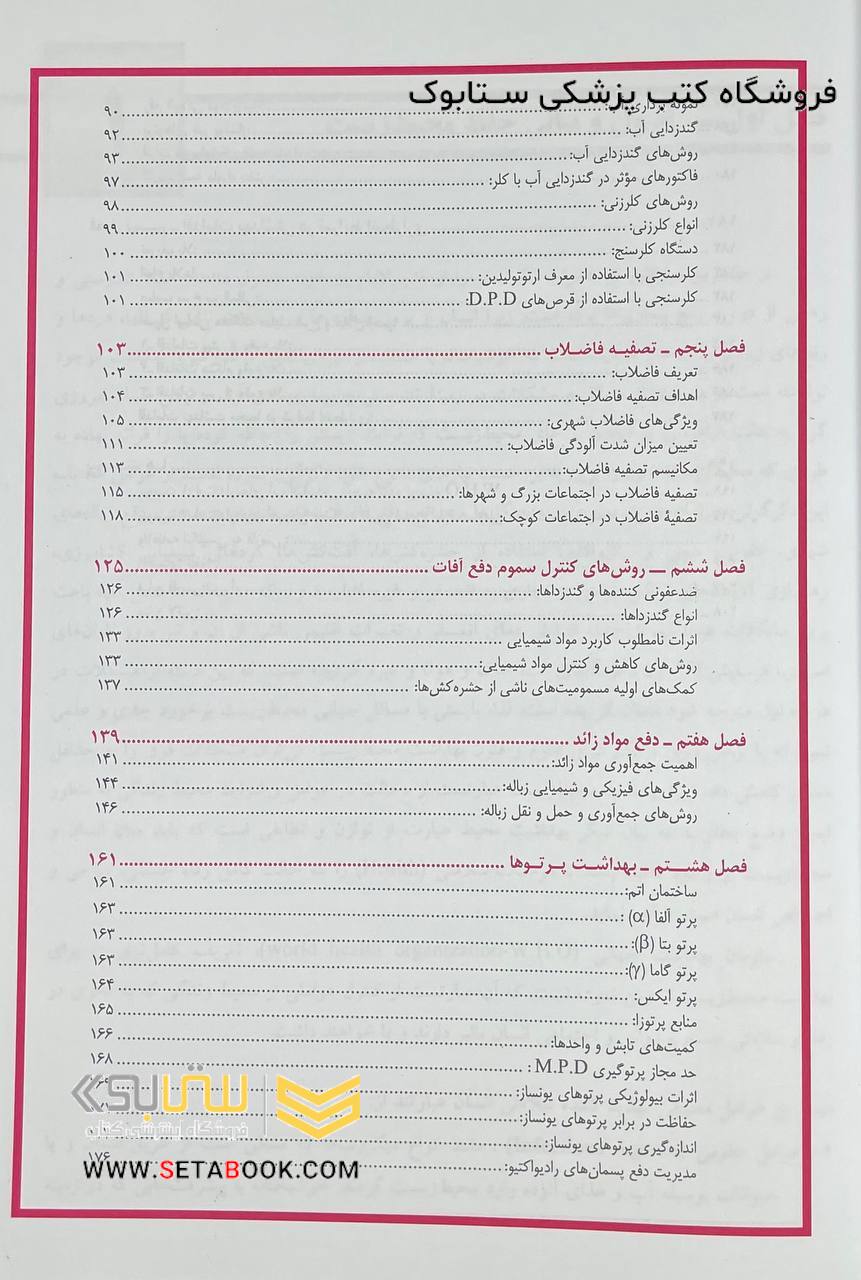 فروشگاه کتب پزشکی ستابوک
نمونه برداری ........ ۹۰
گندزدایی آب: ........ ۹۲
روش‌های گندزدایی آب: ........ ۹۳
فاکتورهای مؤثر در گندزدایی آب با کلر: ........ ۹۷
روش‌های کلرزنی: ........ ۹۸
انواع کلرزنی: ........ ۹۹
دستگاه کلرسنج: ........ ۱۰۰
کلرسنجی با استفاده از معرف ارتوتولیدین: ........ ۱۰۱
کلرسنجی با استفاده از قرص‌های D.P.D: ........ ۱۰۱
فصل پنجم ـ تصفیه فاضلاب ........ ۱۰۳
تعریف فاضلاب: ........ ۱۰۳
اهداف تصفیه فاضلاب: ........ ۱۰۴
ویژگی‌های فاضلاب شهری: ........ ۱۰۵
تعیین میزان شدت آلودگی فاضلاب: ........ ۱۱۱
مکانیسم تصفیه فاضلاب: ........ ۱۱۳
تصفیه فاضلاب در اجتماعات بزرگ و شهرها: ........ ۱۱۵
تصفیهٔ فاضلاب در اجتماعات کوچک: ........ ۱۱۸
فصل ششم ـ روش‌های کنترل سموم دفع آفات ........ ۱۲۵
ضدعفونی کننده‌ها و گندزداها: ........ ۱۲۶
انواع گندزداها: ........ ۱۲۶
اثرات نامطلوب کاربرد مواد شیمیایی ........ ۱۳۳
روش‌های کاهش و کنترل مواد شیمیایی: ........ ۱۳۳
کمک‌های اولیه مسمومیت‌های ناشی از حشره‌کش‌ها: ........ ۱۳۷
فصل هفتم ـ دفع مواد زائد ........ ۱۳۹
اهمیت جمع‌آوری مواد زائد: ........ ۱۴۱
ویژگی‌های فیزیکی و شیمیایی زباله: ........ ۱۴۴
روش‌های جمع‌آوری و حمل و نقل زباله: ........ ۱۴۶
فصل هشتم ـ بهداشت پرتوها ........ ۱۶۱
ساختمان اتم: ........ ۱۶۱
پرتو آلفا (α) : ........ ۱۶۳
پرتو بتا (β): ........ ۱۶۳
پرتو گاما (γ): ........ ۱۶۳
پرتو ایکس: ........ ۱۶۴
منابع پرتوزا: ........ ۱۶۵
کمیت‌های تابش و واحدها: ........ ۱۶۶
حد مجاز پرتوگیری M.P.D : ........ ۱۶۸
اثرات بیولوژیکی پرتوهای یونساز: ........
حفاظت در برابر پرتوهای یونساز: ........
اندازه‌گیری پرتوهای یونساز: ........
مدیریت دفع پسمان‌های رادیواکتیو: ........ ۱۷۶
ستابوک
فروشگاه اینترنتی کتاب
WWW.SETABOOK.COM